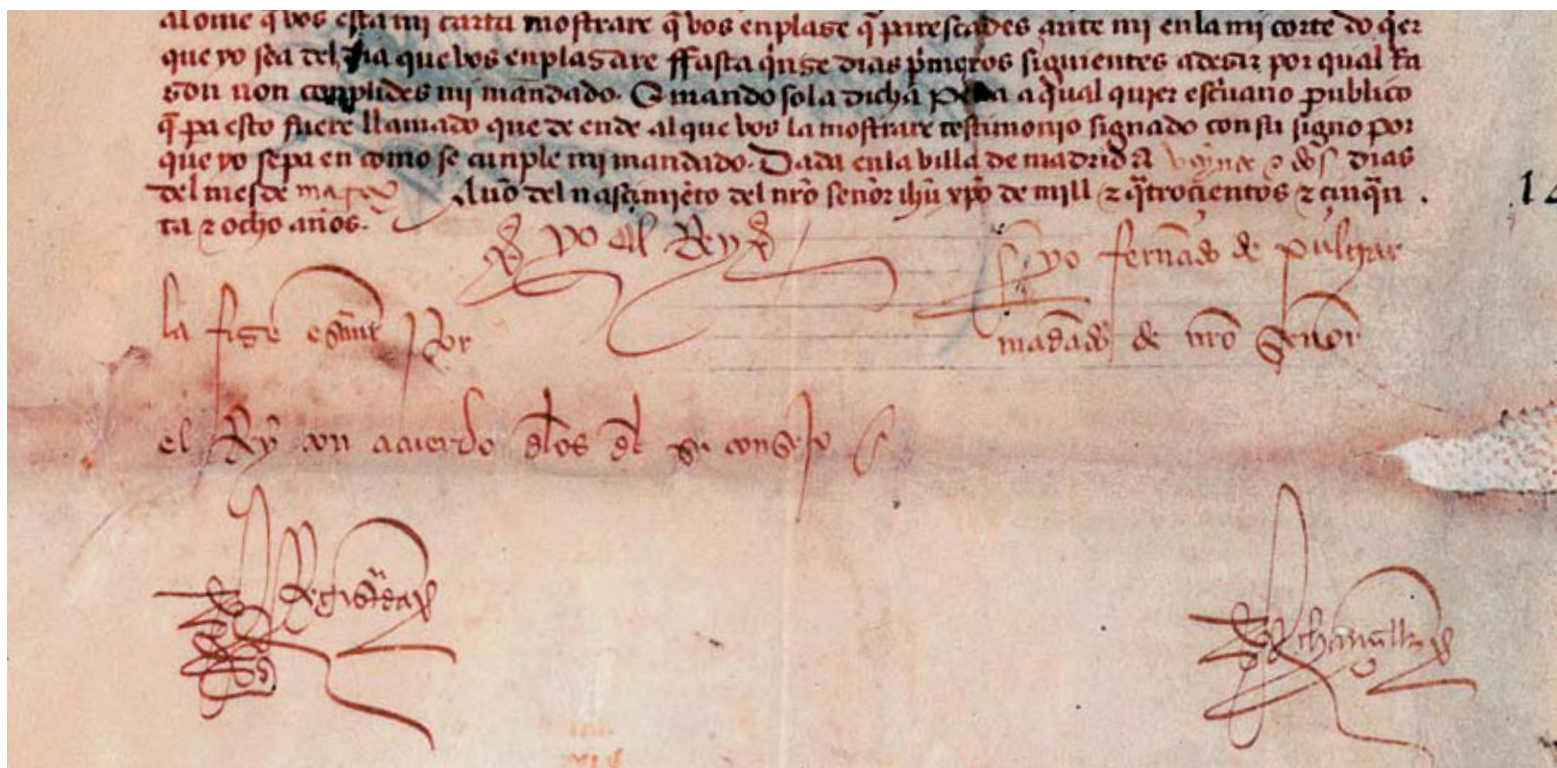 al ome q̃ vos esta mi carta mostrare q̃ vos enplase q̃ parescades ante mi en la mi corte do q̃er
que yo sea del dia que vos enplasare ffasta q̃nse dias p̃meros siguientes a desir por qual rra
son non conplides mi mandado. E mando so la dicha pena a qual quier esc̃uano publico
q̃ pa esto fuere llamado que de ende al que vos la mostrare testimonio signado con su signo por
que yo sepa en como se cunple mi mandado. Dada en la villa de madrid a veynte e dos dias
del mes de março Año del nasçimiẽto del nr̃o señor ihũ xp̃o de mill e q̃trocientos e cinq̃n
ta e ocho años.
yo el Rey
yo fernãdo de pulgar
la fise escreuir por
mãdado de nr̃o señor
el Rey con acuerdo dlos dl su consejo
Registrada
chançeller
12